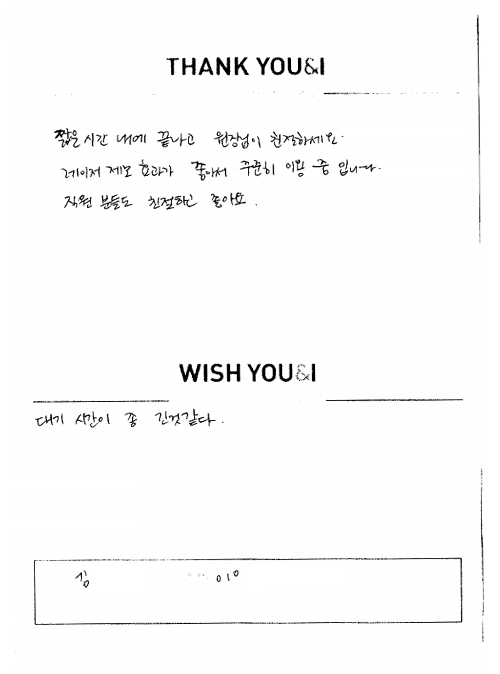 THANK YOU&I
짧은 시간 내에 끝나고 원장님이 친절하세요.
레이저 제모 효과가 좋아서 꾸준히 이용 중 입니다.
직원 분들도 친절하고 좋아요.
WISH YOU&I
대기 시간이 좀 긴것같다.
김 010